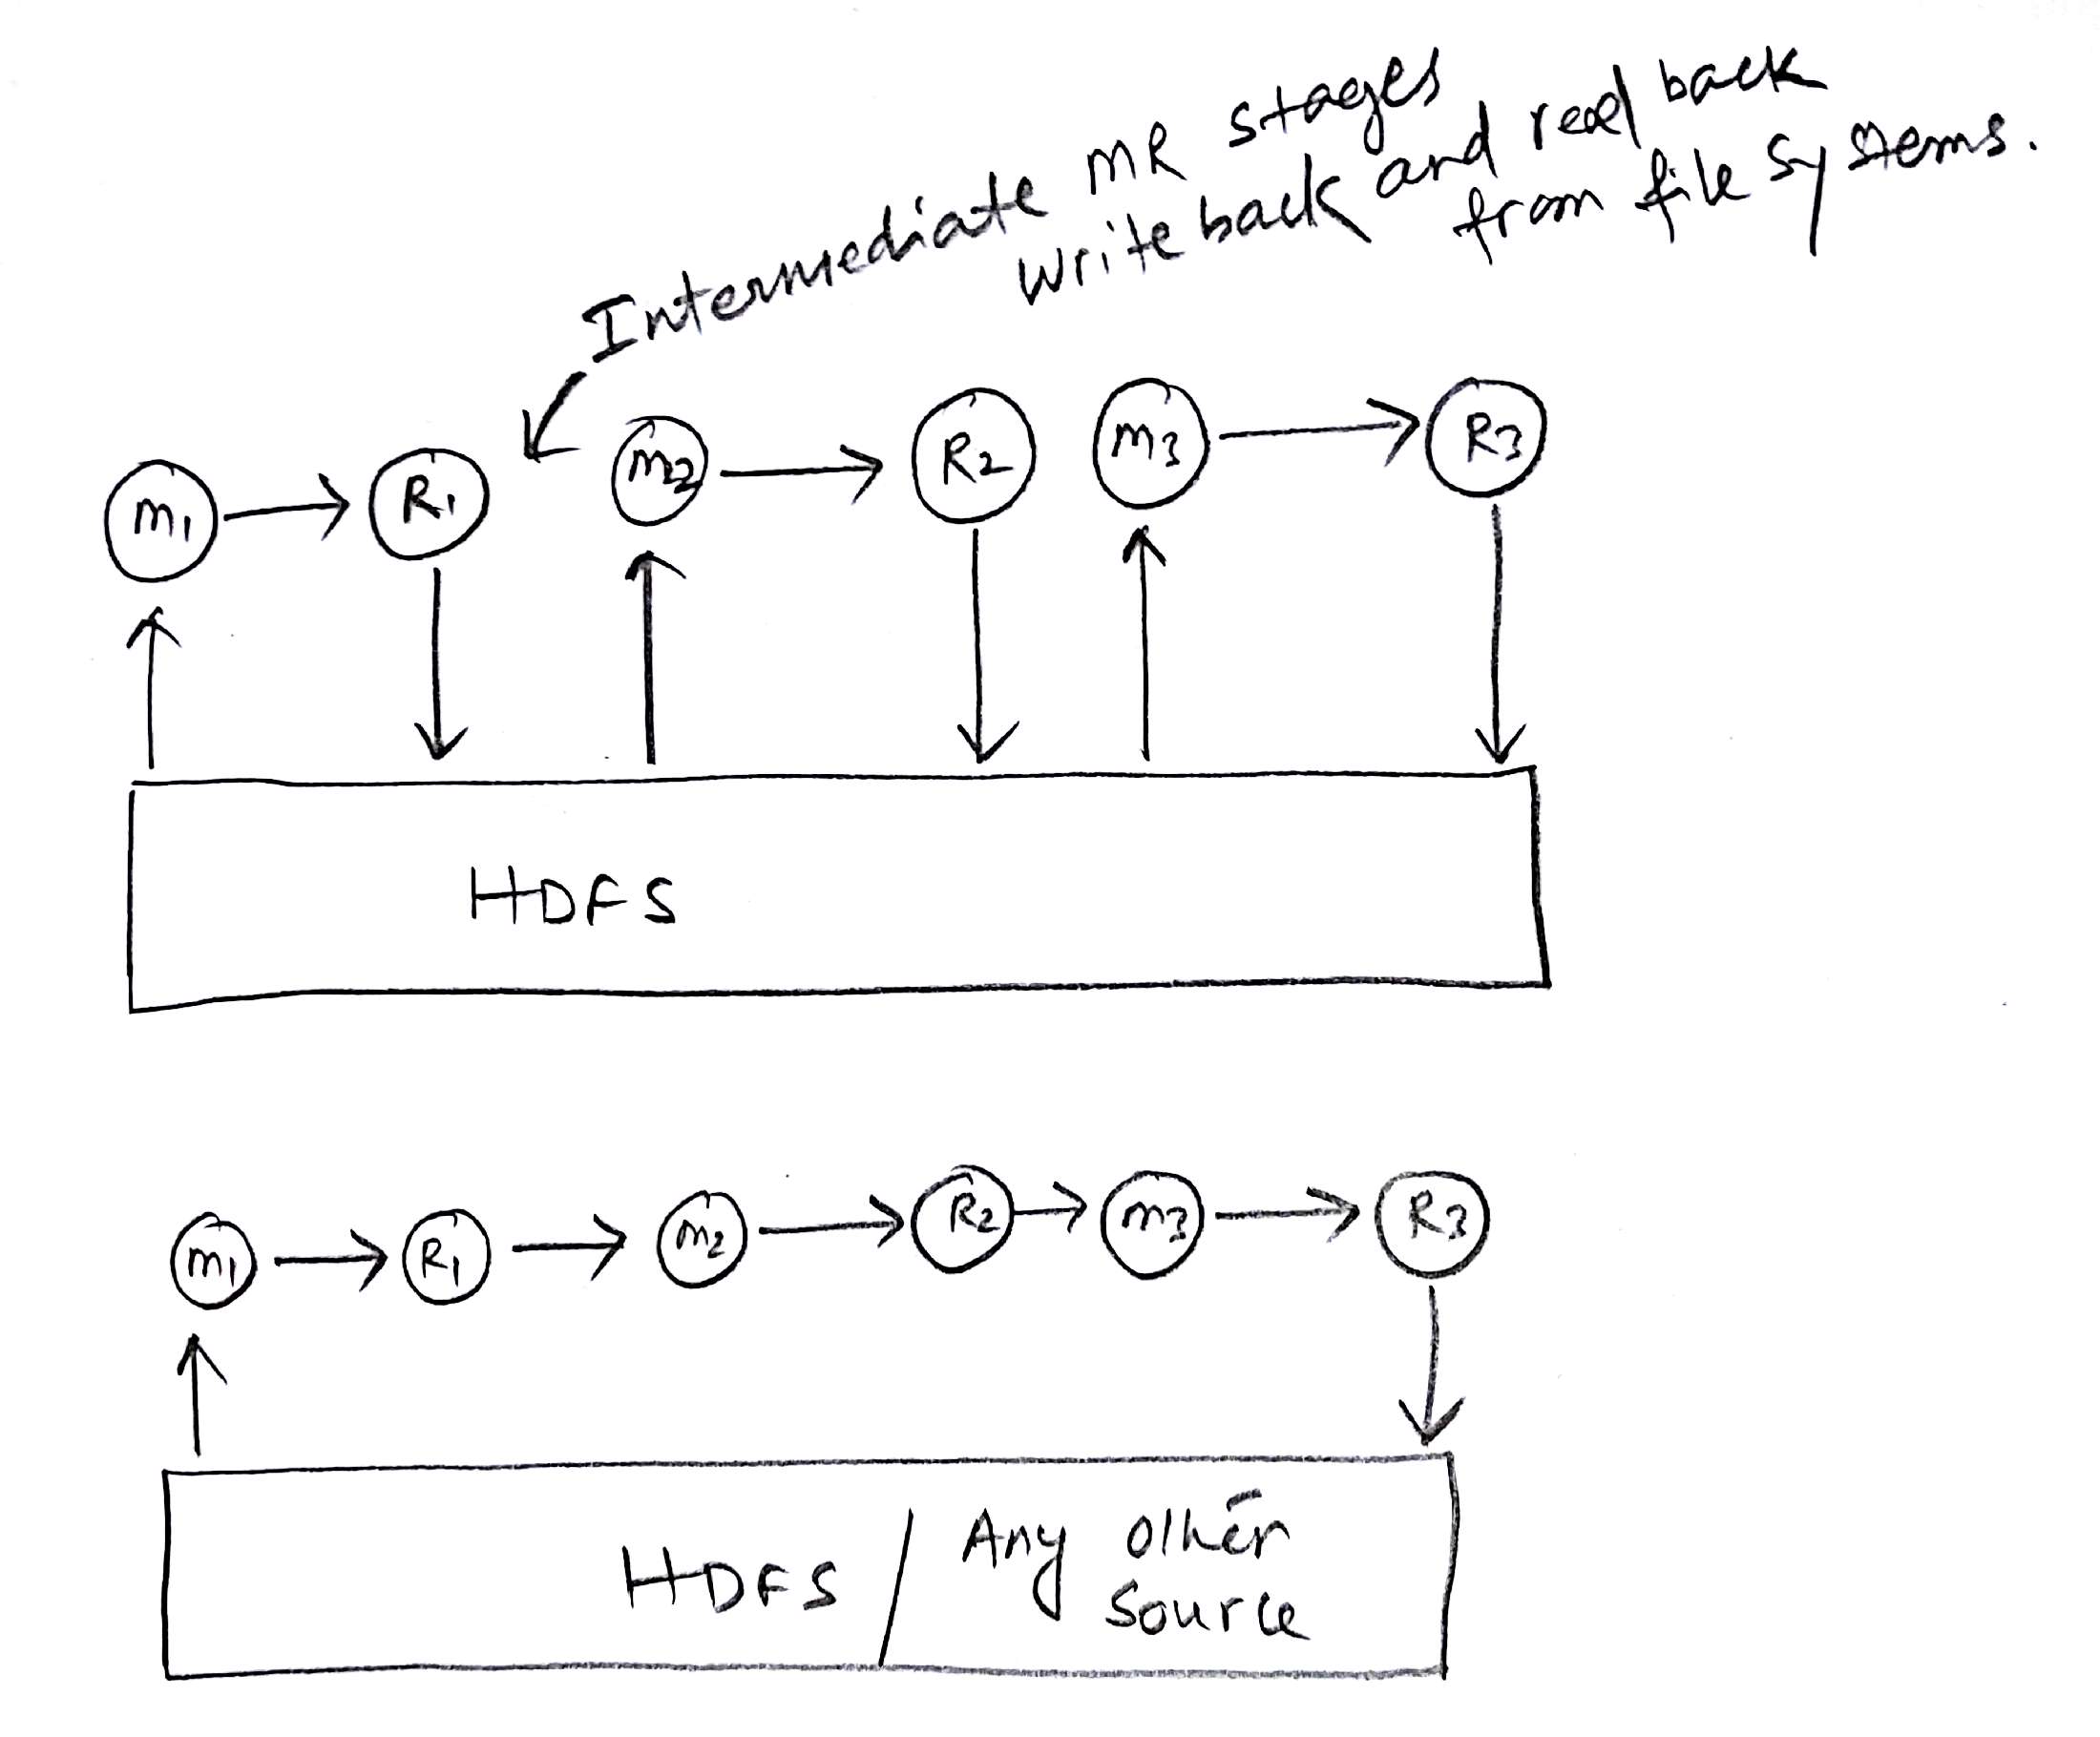 Intermediate MR stages
Write back and read back
from file systems.
m1
R1
m2
R2
m3
R3
HDFS
m1
R1
m2
R2
m3
R3
HDFS / Any other
source